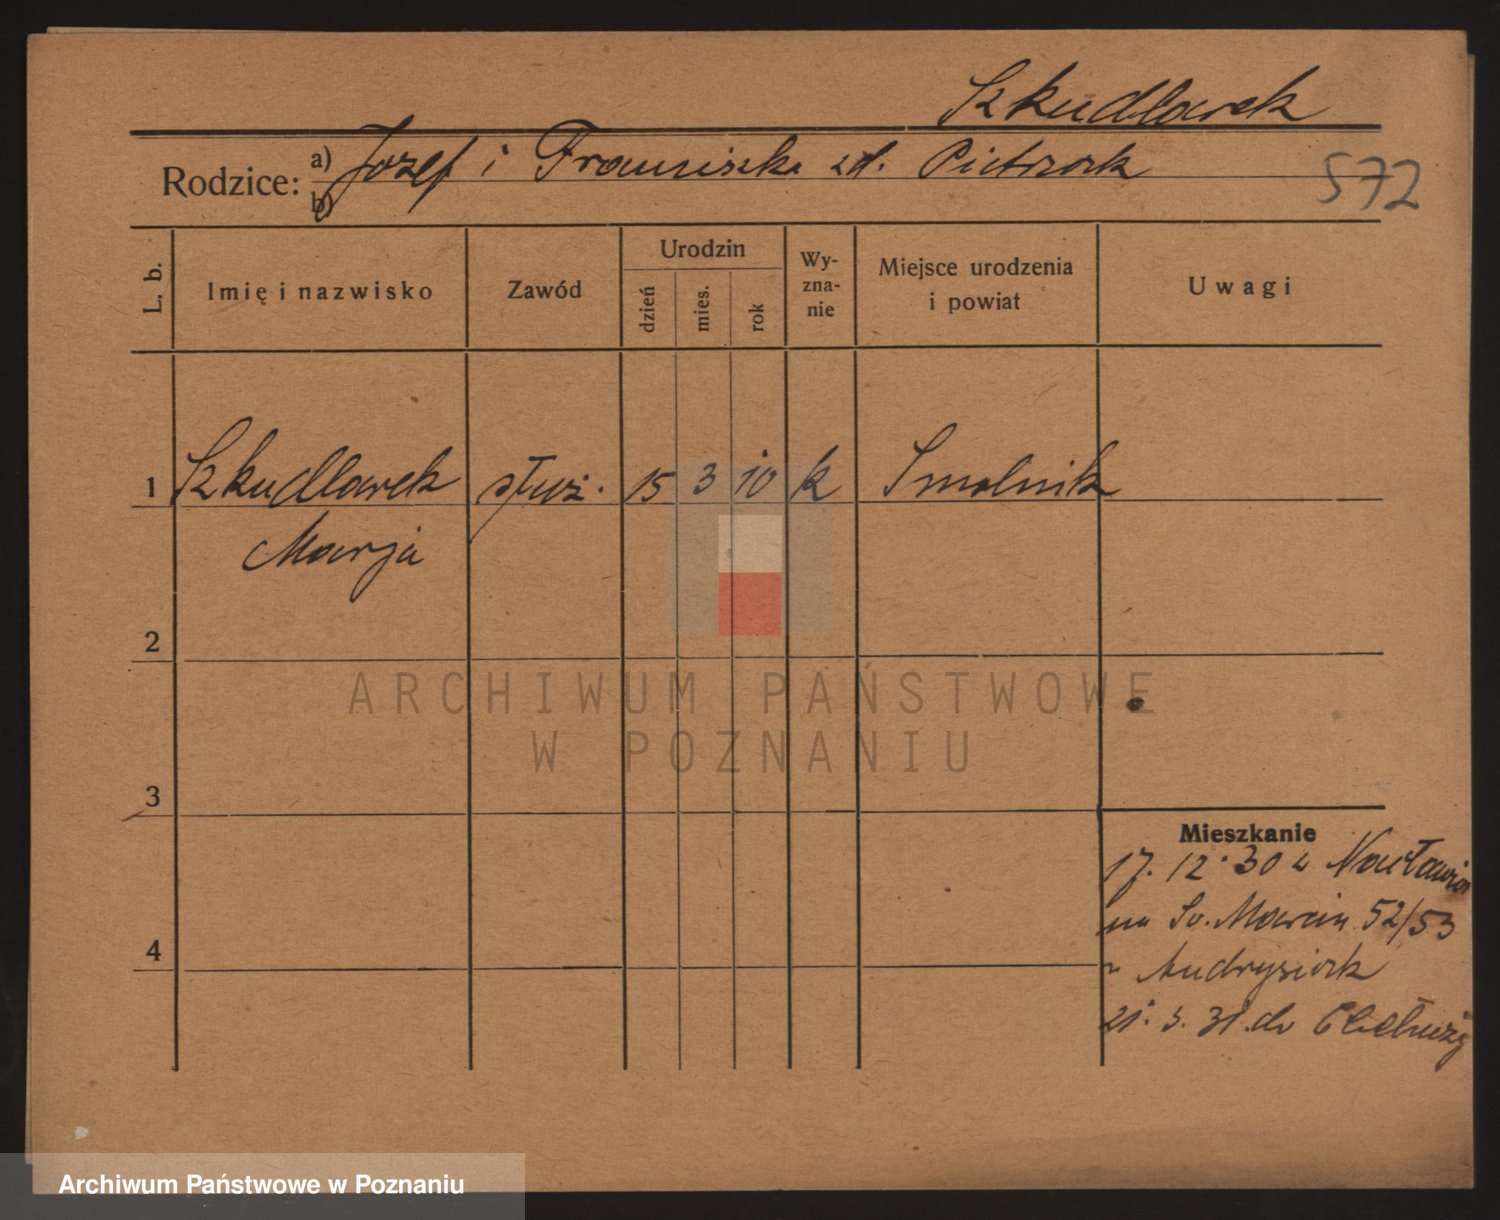 Szkudlarek
Rodzice: a) Józef i Franciszka zd. Pietrzak
b)
572
L. b.
Imię i nazwisko
Zawód
Urodzin
dzień
mies.
rok
Wy-
zna-
nie
Miejsce urodzenia
i powiat
Uwagi
1 Szkudlarek służ. 15 3 10 k Smolnik
Marja
2
3
4
Mieszkanie
17. 12. 30 z
na Św. Marcin 52/53
Andrysiak
21. 3. 31. do
ARCHIWUM PAŃSTWOWE
W POZNANIU
Archiwum Państwowe w Poznaniu